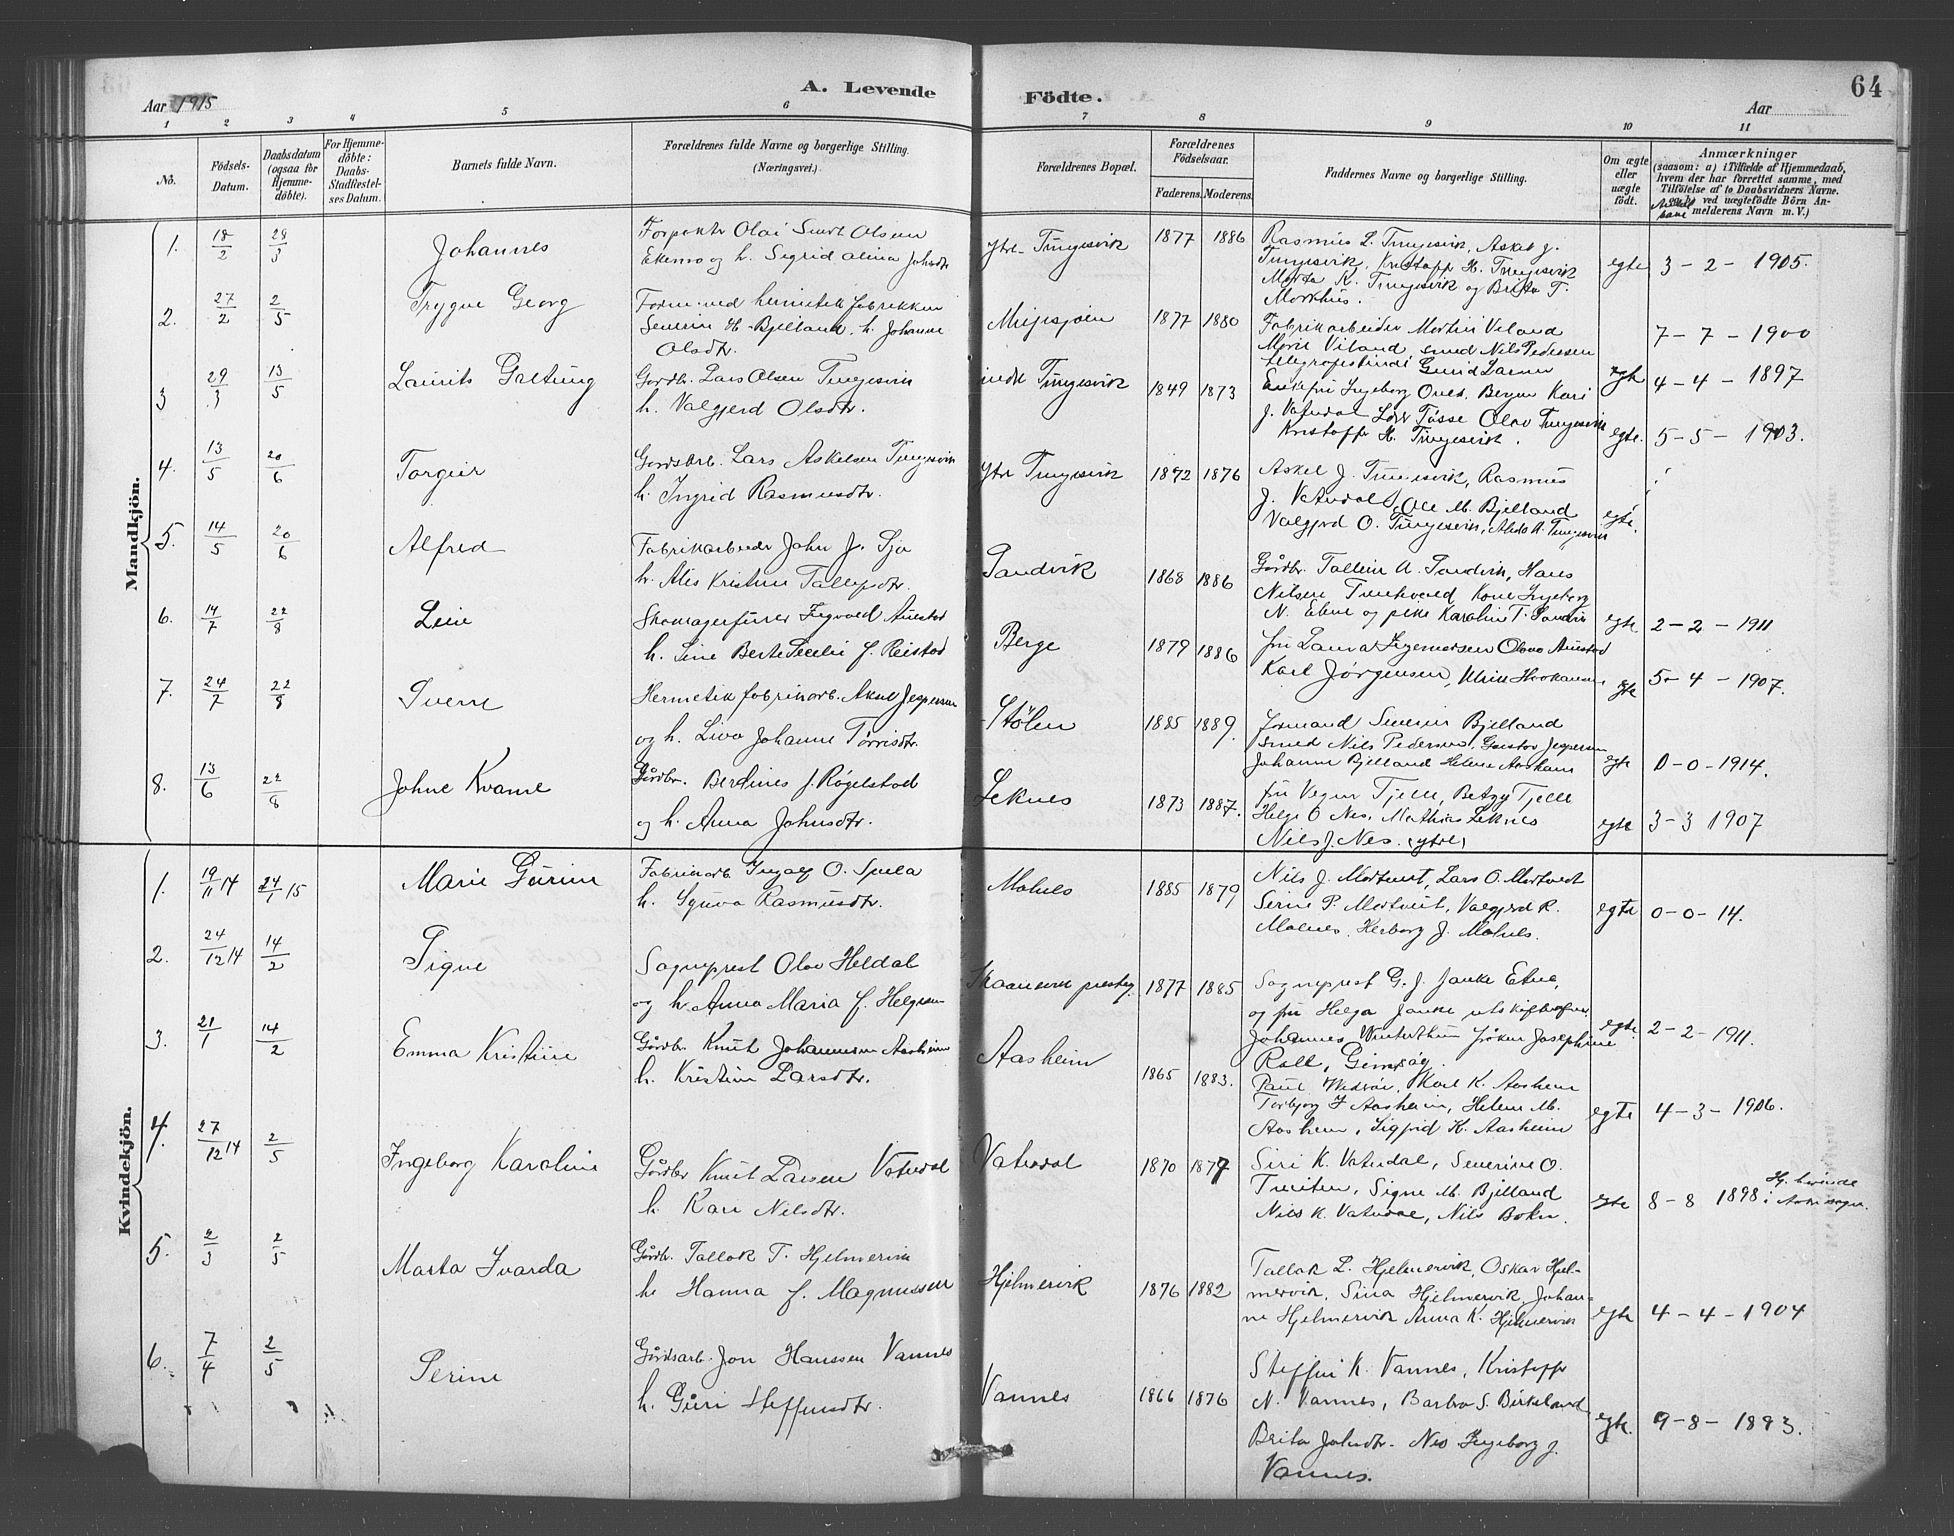 64
A. Levende Födte.
Aar 1915
Aar
1 2 3 4 5 6 7 8 9 10 11
No.
Födsels-
Datum.
Daabsdatum
(ogsaa for
Hjemme-
döbte).
For Hjemme-
döbte:
Daabs-
Stadfæstel-
ses Datum.
Barnets fulde Navn.
Forældrenes fulde Navne og borgerlige Stilling.
(Næringsvei.)
Forældrenes Bopæl.
Forældrenes
Födselsaar.
Faderens. Moderens.
Faddernes Navne og borgerlige Stilling.
Om ægte
eller
uægte
födt.
Anmærkninger
(saasom: a) i Tilfælde af Hjemmedaab,
hvem der har forrettet samme, med
Tilföielse af to Daabsvidners Navne.
b) ved uægtefödte Börn An-
melderens Navn m. V.)
Mandkjön.
1. 18/2 28/3 Johannes
Forpakter Olai Smedt Olsen
Ekemo og h. Sigrid Olina Johsdtr
Ytre-Tungesvik 1877 1886
Rasmus L. Tungesvik, Askel J.
Tungesvik, Kristoffr H. Tungesvik
Marta K. Tungesvik og Brita T.
Markhus.
egte 3-2-1905.
2. 27/2 2/5 Trygve Georg
Form. ved hermetikfabrikken
Severin H. Bjelland, h. Johanne
Olsdtr.
1877 1880
Fabrikarbeider Martin Viland
Marie Viland smed Nils Pedersen
Gurid Larsen
egte 7-7-1900
3 29/3 13/5 Laurits Galtung
Gardbr. Lars Olsen Tungesvik
h. Valgjerd Olsdtr.
indre Tungesvik 1849 1873
Enkefru Ingeborg Bergen Kari
J. Vatndal Lars Tøsse Olav Tungesvik
Kristoffr H. Tungesvik.
egte. 4-4-1897
4. 13/5 20/6 Torgeir
Gardsbrb. Lars Askelsen Tungesvik
h. Ingrid Rasmusdtr.
Ytr Tungesvik 1872 1876
Askel J. Tungesvik, Rasmus
J. Vatndal, Ole M. Bjelland
Valgjerd O. Tungesvik, Tungesvik
egte. 5-5-1903.
5. 14/5 20/6 Alfred
Fabrikarbeider John J. Sjo
h. Alis Kristine Tallepdtr.
Sandvik 1868 1886
Gårdbr. Tallein A. Sandvik, Hans
Nilsen Kone Ingeborg
N. Ekne og pike Karoline T. Sandvik
egte 2-2-1911
6. 14/7 22/8 Leiv
Skomagerfuser Ingvald Auestad
h. Sine Berte Secelie f. Reistad
Berge 1879 1886
fru Laura Ingemorsen Olava Auestad
Karl Jørgensen,
egte 5-4-1907.
7. 24/7 22/8 Sverre
Hermetikfabrikarb. Aksel Jespersen
og h. Liva Johanne Tørrisdtr.
Stølen 1885 1889.
Formand Severin Bjelland
smed Nils Pedersen, Gustav Jespersen
Johanne Bjelland Helene Aasheim
egte 0-0-1914.
8. 13/6 22/8 Johne Kvame
Gårdbr. Berdines J. Røgelstad
og h. Anna Johnsdtr.
Leknes 1873 1887.
fru Vegur Tjelle, Betzy Tjelle
Helge O Nes, Mathias Leknes
Nils J. Nes. (ytre)
egte 3-3 1907
Kvindekjön.
1. 19/11 14 24/1 15 Marie Gurine
Fabrikarb. Ingolf O. Spela
h. Synva Rasmusdtr.
Molnes 1885 1879
Nils J. Mortveit, Lars O. Mortveit
Serine P. Mortveit, Valgjerd R.
Molnes, Herborg J. Molnes.
egte 0-0-14.
2. 24/12 14 14/2 Signe
Sogneprest Olav Heldal
og h. Anna Maria f. Helgesen
Skaanevik presteg. 1877 1885
Sogneprest G. J. Janke Etne,
og fru Helga Janke
Johannes Vinterthun frøken Josephine
Roll,
egte. 2-2-1911.
3. 21/1 14/2 Emma Kristine
Gårdbr. Knut Johannesen Aasheim
h. Kristine Larsdtr.
Aasheim 1865 1883.
Paul Karl K. Aasheim
Torbjørg J Aasheim, Helene M.
Aasheim, Sigfrid K. Aasheim
egte 4-3-1906.
4. 27/12 14 2/5 Ingeborg Karoline
Gårdbr Knut Larsen Vatndal
h. Kari Nilsdtr.
Vatndal 1870 1877
Siri K. Vatndal, Severine O.
Tveiten, Signe M. Bjelland
Nils K. Vatndal, Nils Bokn.
egte 8-8 1898
5. 2/3 2/5 Marta Ivarda
Gårdbr. Tallak T. Hjelmervik
h. Hanna f. Magnussen
Hjelmervik 1876 1882
Tallak L. Hjelmervik, Oskar Hjel-
mervik, Sina Hjelmervik, Johan-
ne Hjelmervik Anna K. Hjelmervik
egte 4-4-1904
6. 7/4 2/5 Serine
Gårdsarb. Jon Hanssen Vannes
h. Guri Steffensdtr.
Vannes 1866 1876
Steffen K. Vannes, Kristoffr
N. Vannes, Barbra S. Birkeland
Brita Johsdtr. Nes Ingeborg J.
Vannes.
egte. 9-8-1893.